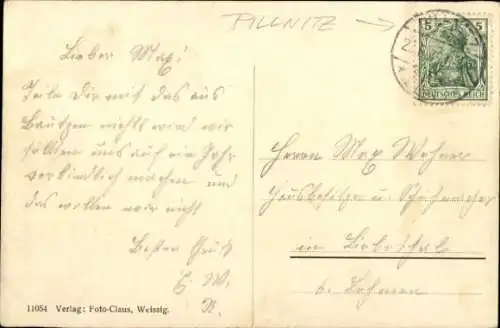 PILLNITZ
5 5
DEUTSCHES REICH
Lieber Max!
Teile Dir mit das aus
Bautzen nichts wird wir
sollten uns auf ein Jahr
verbindlich machen und
das wollen wir nicht
Besten Gruß
E. W.
R.
Herrn Max Wehner
Hausbesitzer u. Schuhmacher
in Liebethal
b. Lohmen
11054 Verlag: Foto-Claus, Weissig.